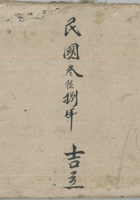 民國叁拾捌年
吉立